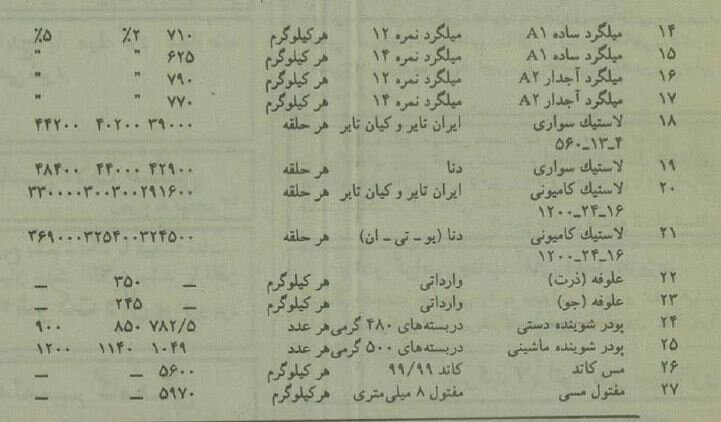 ۱۴ میلگرد ساده A۱ میلگرد نمره ۱۲ هرکیلوگرم ۷۱۰ ۲٪ ۵٪
۱۵ میلگرد ساده A۱ میلگرد نمره ۱۴ هر کیلوگرم ۶۲۵ " "
۱۶ میلگرد آجدار A۲ میلگرد نمره ۱۲ هر کیلوگرم ۷۹۰ " "
۱۷ میلگرد آجدار A۲ میلگرد نمره ۱۴ هر کیلوگرم ۷۷۰ " "
۱۸ لاستیك سواری ایران تایر و کیان تایر هر حلقه ۳۹۰۰۰ ۴۰۲۰۰ ۴۴۲۰۰
۵۶۰_۱۳_۴
۱۹ لاستیك سواری دنا هر حلقه ۴۲۹۰۰ ۴۴۰۰۰ ۴۸۴۰۰
۲۰ لاستیك کامیونی ایران تایر و کیان تایر هر حلقه ۲۹۱۶۰۰ ۳۰۰۳۰۰ ۳۳۰۰۰۰
۱۲۰۰_۲۴_۱۶
۲۱ لاستیك کامیونی دنا (یو ـ تی ـ ان) هر حلقه ۳۲۴۵۰۰ ۳۲۵۴۰۰ ۳۶۹۰۰۰
۱۲۰۰_۲۴_۱۶
۲۲ علوفه (ذرت) وارداتی هر کیلوگرم _ ۳۵۰ _
۲۳ علوفه (جو) وارداتی هر کیلوگرم _ ۲۴۵ _
۲۴ پودر شوینده دستی دربسته‌های ۴۸۰ گرمی هر عدد ۷۸۲/۵ ۸۵۰ ۹۰۰
۲۵ پودر شوینده ماشینی دربسته‌های ۵۰۰ گرمی هر عدد ۱۰۴۹ ۱۱۴۰ ۱۲۰۰
۲۶ مس کاتد کاتد ۹۹/۹۹ هر کیلوگرم ۵۶۰۰ _ _
۲۷ مفتول مسی مفتول ۸ میلی‌متری هرکیلوگرم ۵۹۷۰ _ _